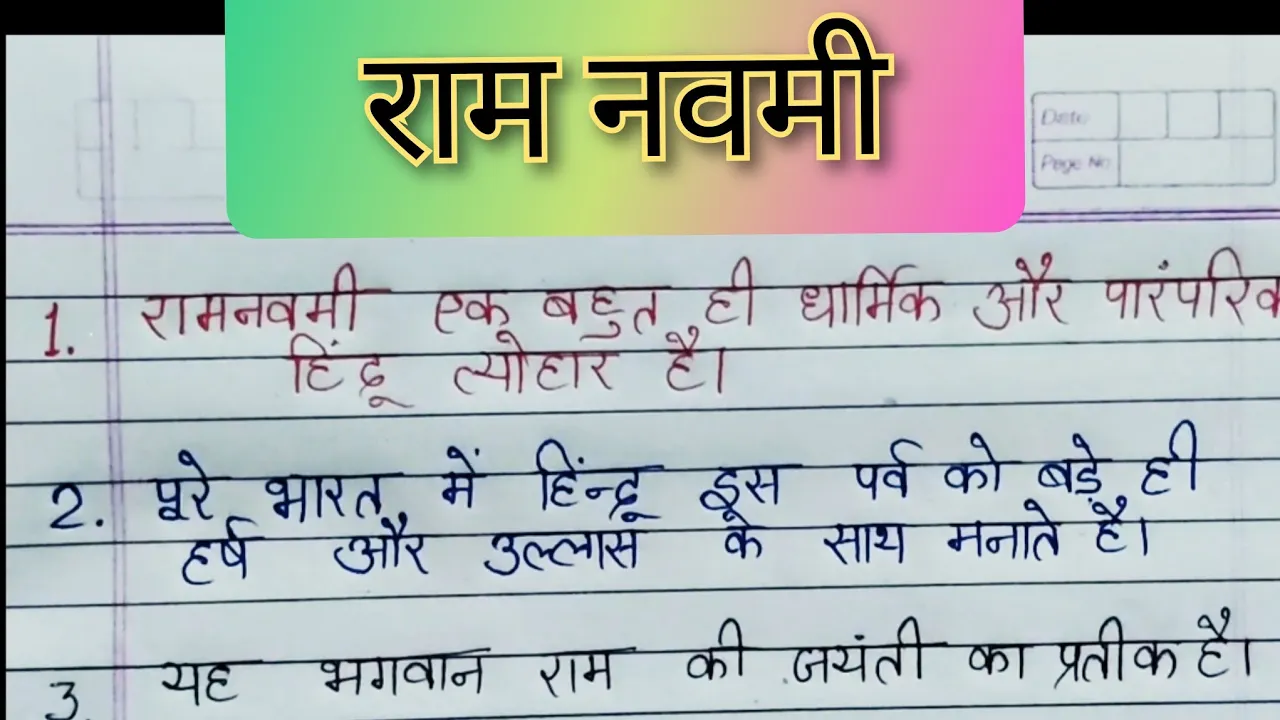 राम नवमी
Date
Page No
1. रामनवमी एक बहुत ही धार्मिक और पारंपरिक
हिंदू त्योहार है।
2. पूरे भारत में हिन्दू इस पर्व को बड़े ही
हर्ष और उल्लास के साथ मनाते है।
3. यह भगवान राम की जयंती का प्रतीक है।